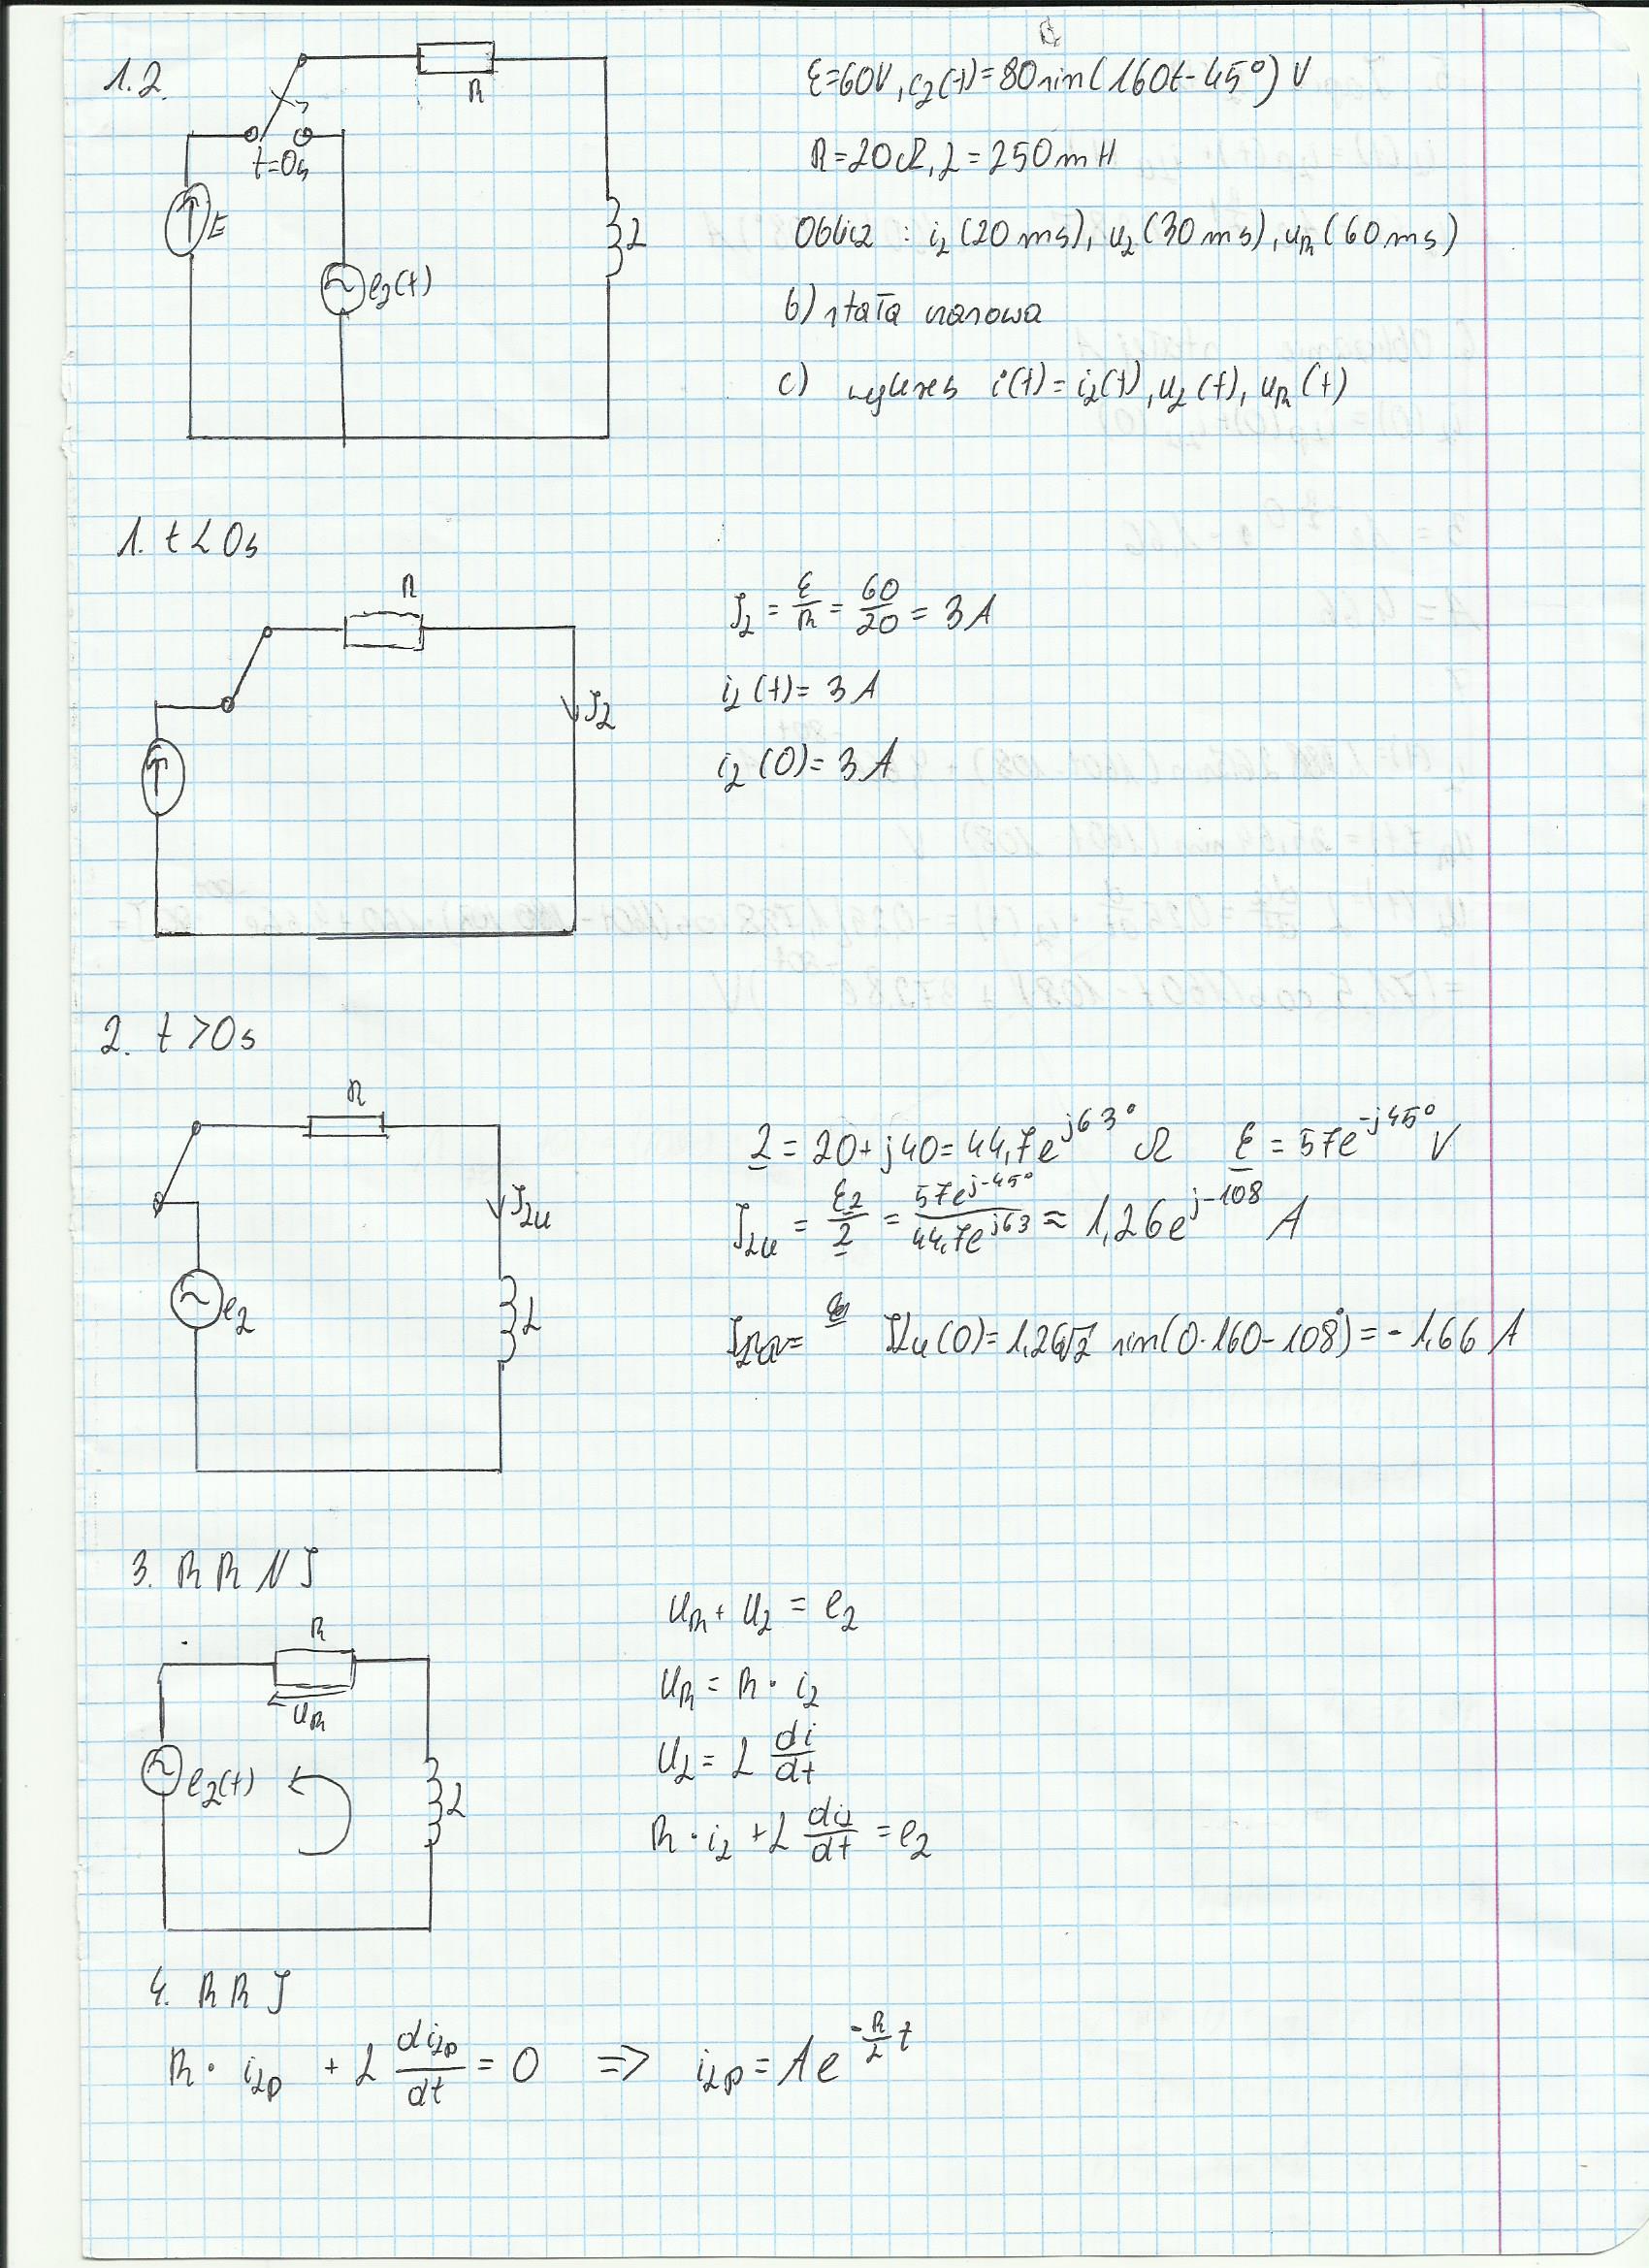 1.2.
R
t=0s
E
e₂(t)
L
E=60V, e₂(t)=80sin(160t-45°) V
R=20Ω, L=250mH
Oblicz : i_L(20ms), u_L(30ms), u_R(60ms)
b) stała czasowa
c) wykres i(t)=i_L(t), u_L(t), u_R(t)
1. t<0s
R
I_L
I_L = E/R = 60/20 = 3A
i_L(t)= 3A
i_L(0)= 3A
2. t>0s
R
I_Lu
e₂
L
Z = 20+j40=44,7e^{j63°} Ω E = 57e^{-j45°} V
I_Lu = E₂/Z = 57e^{j-45°}/44,7e^{j63} ≈ 1,26e^{j-108} A
I_Lu(0)=1,26√2 sin(0·160-108°)=-1,66 A
3. R R N J
R
u_R
e₂(t)
L
u_R + u_L = e₂
u_R = R · i_L
u_L = L di/dt
R · i_L + L di_L/dt = e₂
4. R R J
R · i_Lp + L di_Lp/dt = 0 => i_Lp = Ae^{-R/L t}